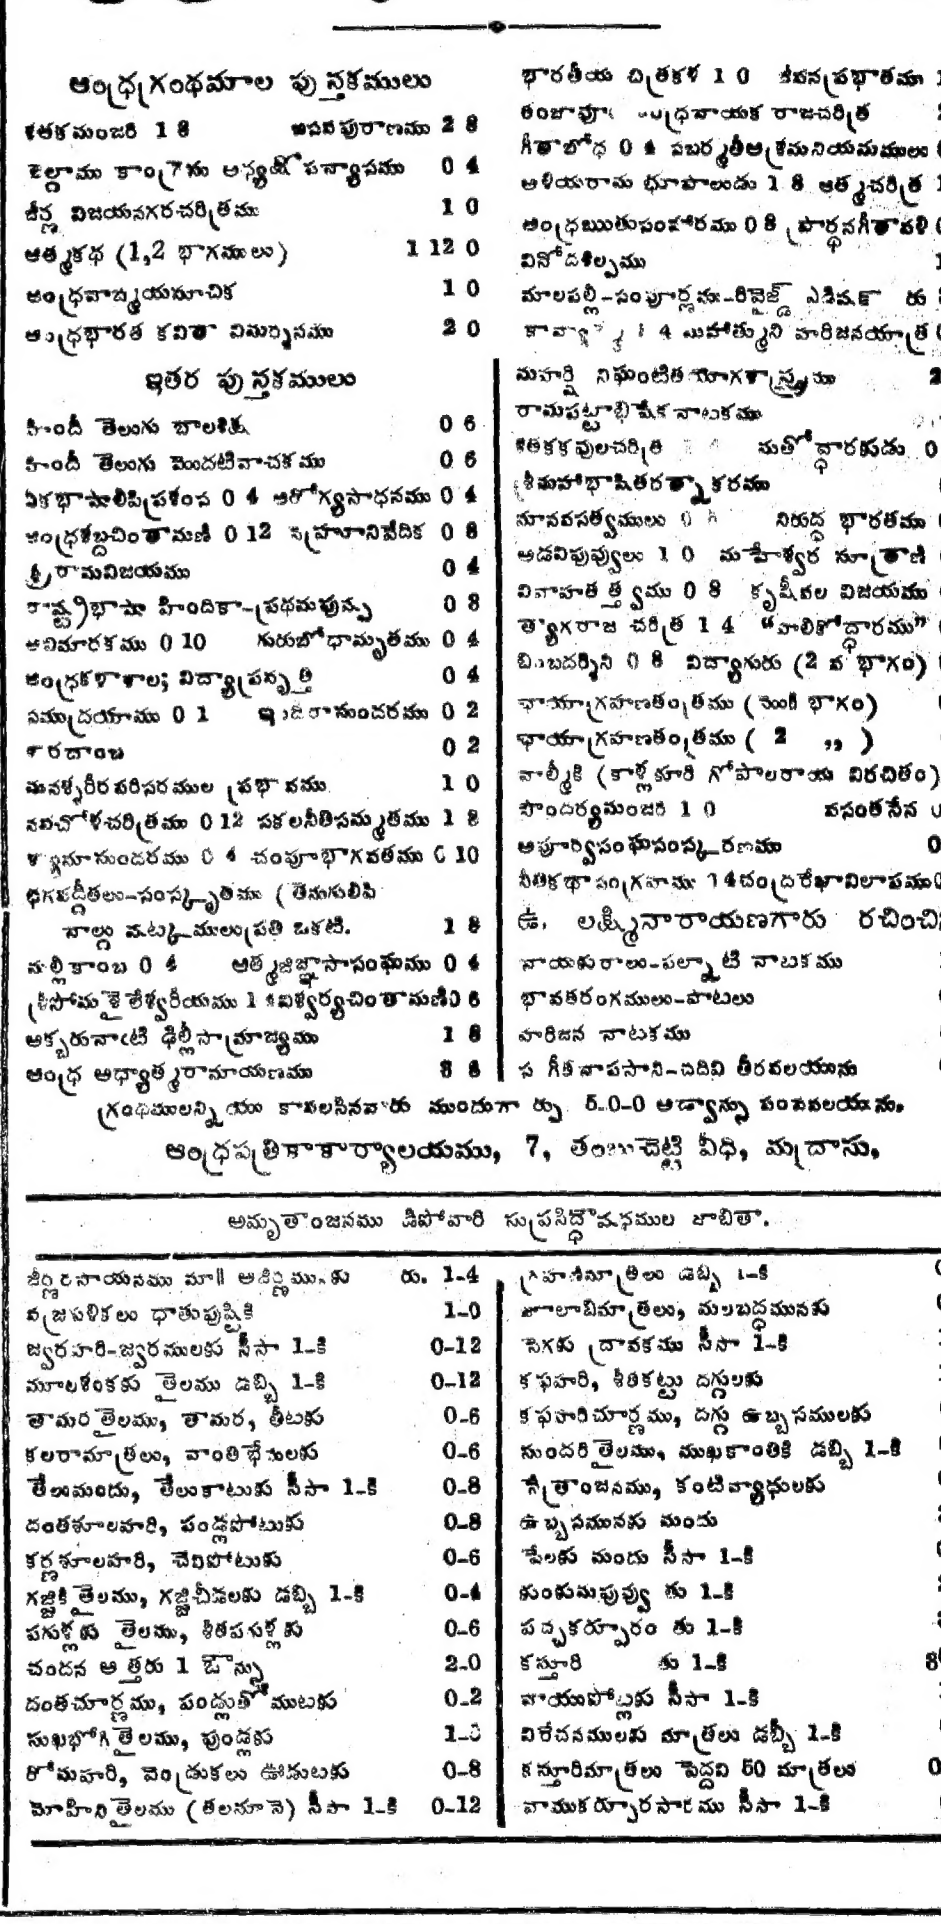 ఆంధ్రగ్రంథమాల పుస్తకములు
శతకమంజరి 1 8 బసవపురాణము 2 8
కల్లాము కాంగ్రెసు అన్యక్షోపన్యాసము 0 4
జీర్ణ విజయనగరచరిత్రము 1 0
ఆత్మకథ (1,2 భాగములు) 1 12 0
ఆంధ్రవాఙ్మయసూచిక 1 0
ఆంధ్రభారత కవితా విమర్శనము 2 0
ఇతర పుస్తకములు
హిందీ తెలుగు బాలశిక్ష 0 6
హిందీ తెలుగు మొదటివాచకము 0 6
ఏకభాషాలిపిప్రశంస 0 4 ఆరోగ్యసాధనము 0 4
ఆంధ్రశబ్దచింతామణి 0 12 నెహ్రూనివేదిక 0 8
శ్రీరామవిజయము 0 4
రాష్ట్రభాషా హిందికా-ప్రథమపుష్ప 0 8
అవిమారకము 0 10 గురుబోధామృతము 0 4
ఆంధ్రకళాశాల; విద్యాప్రవృత్తి 0 4
సముద్రయాము 0 1 ఇందిరాసుందరము 0 2
శారదాంబ 0 2
మనశ్శరీరపరిసరముల ప్రభావము 1 0
నవచోళచరిత్రము 0 12 సకలనీతిసమ్మతము 1 8
శ్యామాసుందరము 0 4 చంపూభాగవతము 0 10
భగవద్గీతలు-సంస్కృతము (తెనుగులిపి
నాల్గు పటక్కములు ప్రతి ఒకటి. 1 8
మల్లికాంబ 0 4 ఆత్మజిజ్ఞాసాసంఘము 0 4
శ్రీసోమశైలేశ్వరీయము 1 ఈశ్వర్యచింతామణి 0 6
అక్బరునాఁటి ఢిల్లీసామ్రాజ్యము 1 8
ఆంధ్ర ఆధ్యాత్మరామాయణము 3 8
భారతీయ చిత్రకళ 1 0 జీవనప్రభాతము
తంజావూరు ఆంధ్రనాయక రాజచరిత్ర
గీతాబోధ 0 4 సబర్మతీఆశ్రమనియమములు
అళియరామ భూపాలుడు 1 8 ఆత్మచరిత్ర
ఆంధ్రఋతుసంహారము 0 8 ప్రార్థనగీతావళి
వినోదశిల్పము
మాలపల్లి-సంపూర్ణము-రివైజ్డ్ ఎడిషన్ రు
1 4 మహాత్ముని హరిజనయాత్ర
మహర్షి నిఘంటిత యోగశాస్త్రము 2
రామపట్టాభిషేక నాటకము
శతకకవులచరిత్ర మతోద్ధారకుడు 0
శ్రీమహాభాషితరత్నాకరము
మానవసత్వములు 0 నిరుద్ధ భారతము
అడవిపువ్వులు 1 0 మహేశ్వర సూత్రాణి
వివాహతత్త్వము 0 8 కృషీవల విజయము
త్యాగరాజ చరిత్ర 1 4 "హాలికోద్ధారము"
బింబదర్శిని 0 8 విద్యాగురు (2 వ భాగం)
ఛాయాగ్రహణతంత్రము (మొంకి భాగం)
ఛాయాగ్రహణతంత్రము ( 2 ,, )
వాల్మీకి (కాళ్లకూరి గోపాలరాయ విరచితం)
సౌందర్యమంజరి 1 0 వసంతసేన
అపూర్వసంఘసంస్కరణము 0
నీతికథాసంగ్రహము 1 4 చంద్రరేఖావిలాపము 0
ఉ. లక్ష్మీనారాయణగారు రచించిన
నాయకురాలు-పల్నాటి నాటకము
భావతరంగములు-పాటలు
హరిజన నాటకము
సంగీత నాపసాని-చదివి తీరవలయును
గ్రంథములన్నియు కావలసినవారు ముందుగా ర్పు 5-0-0 అడ్వాన్సు పంపవలయును.
ఆంధ్రపత్రికాకార్యాలయము, 7, తంబుచెట్టి వీధి, మద్రాసు,
అమృతాంజనము డిపోవారి సుప్రసిద్ధౌషధముల జాబితా.
జీర్ణరసాయనము మా॥ అజీర్ణమునకు రు. 1-4
వజ్రపలికలు ధాతుపుష్టికి 1-0
జ్వరహరి-జ్వరములకు సీసా 1-కి 0-12
మూలశంకకు తైలము డబ్బి 1-కి 0-12
తామర తైలము, తామర, తీటకు 0-6
కలరామాత్రలు, వాంతిభేదులకు 0-6
తేలుమందు, తేలుకాటుకు సీసా 1-కి 0-8
దంతశూలహరి, పండ్లపోటుకు 0-8
కర్ణశూలహరి, చెవిపోటుకు 0-6
గజ్జికి తైలము, గజ్జిచీడలకు డబ్బి 1-కి 0-4
పగుళ్లకు తైలము, శీతపగుళ్లకు 0-6
చందన అత్తరు 1 ఔన్సు 2-0
దంతచూర్ణము, పండ్లుతోముటకు 0-2
సుఖభోగి తైలము, పుండ్లకు 1-0
రోమహరి, వెండ్రుకలు ఊడుటకు 0-8
మోహిని తైలము (తలనూనె) సీసా 1-కి 0-12
గ్రహణిమాత్రలు డబ్బి 1-కి
బాలాబిమాత్రలు, మలబద్ధమునకు
సెగకు ద్రావకము సీసా 1-కి
కఫహరి, శీతకట్టు దగ్గులకు
కఫహరిచూర్ణము, దగ్గు ఉబ్బసములకు
సుందరి తైలము, ముఖకాంతికి డబ్బి 1-కి
నేత్రాంజనము, కంటివ్యాధులకు
ఉబ్బసమునకు మందు
పేలకు మందు సీసా 1-కి
కుంకుమపువ్వు తు 1-కి
పచ్చకర్పూరం తు 1-కి
కస్తూరి తు 1-కి 8
వాయుపోట్లకు సీసా 1-కి
విరేచనములకు మాత్రలు డబ్బీ 1-కి
కస్తూరిమాత్రలు పెద్దవి 50 మాత్రలు 0
వాముకర్పూరసారము సీసా 1-కి